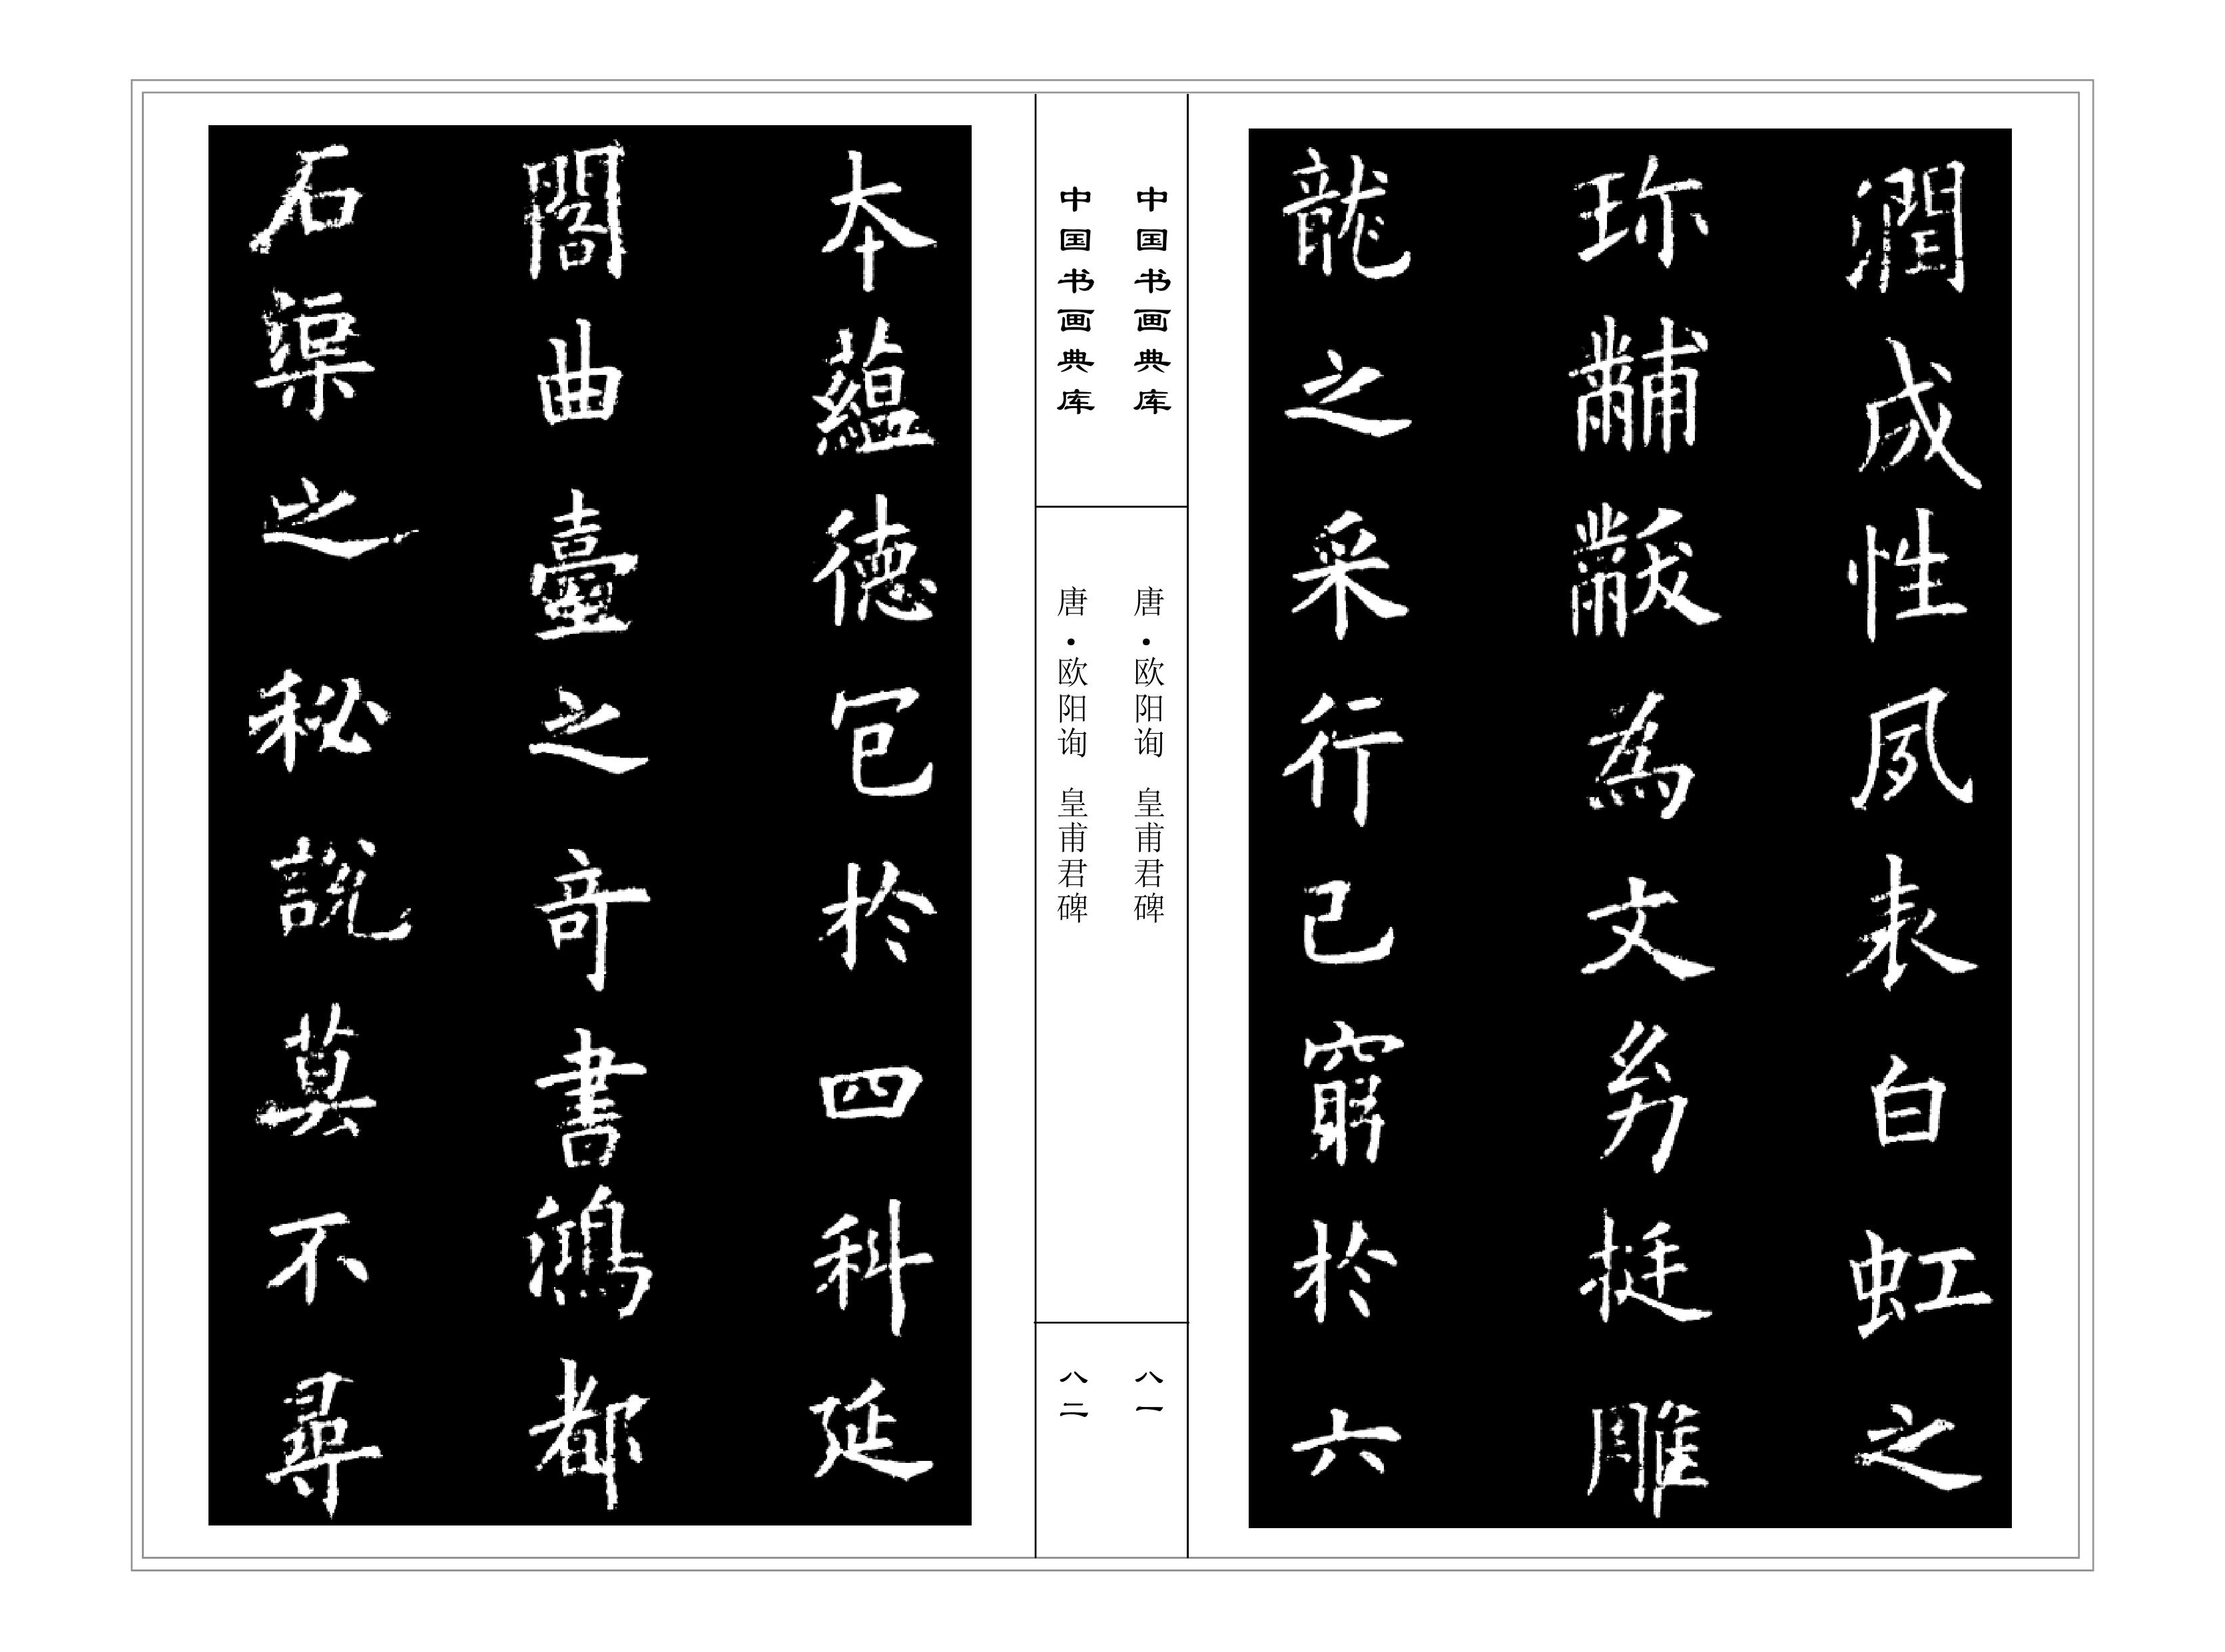 潤成性夙表白虹之
珎黼黻為文夯挺雕
龍之采行己窮於六
中国书画典库
唐·欧阳询 皇甫君碑
八一
中国书画典库
唐·欧阳询 皇甫君碑
八二
本蘊德包於四科延
閣曲臺之奇書鴻都
石渠之秘說莫不尋